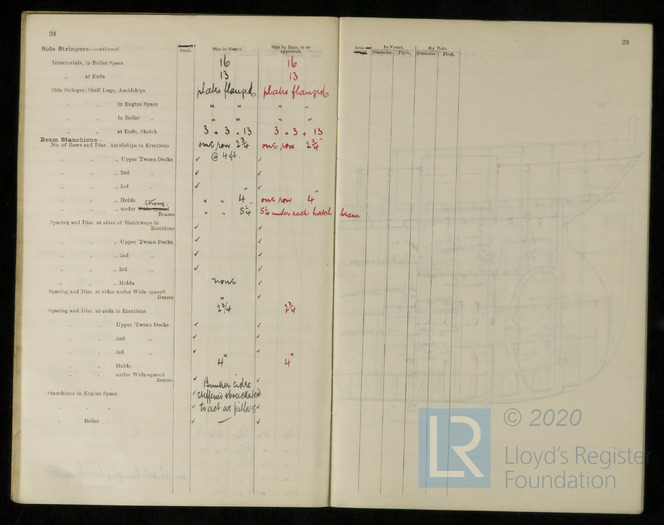 24
Side Stringers—continued.
Steel. Size in Vessel. Size by Rule, or as approved.
Intercostals, in Boiler Space 16 16
„ at Ends 13 13
Side Stringer, Shell Lugs, Amidships plates flanged plates flanged
„ „ in Engine Space „ „ „ „
„ „ in Boiler „ „ „ „ „
„ „ at Ends, Sketch 3 × 3 × 13 3 × 3 × 13
Beam Stanchions—
No. of Rows and Diar. Amidships in Erections one row 2¾" one row 2¾"
„ „ „ Upper Tween Decks ✓ @ 4 ft. ✓
„ „ „ 2nd „ ✓ ✓
„ „ „ 3rd „ ✓ ✓
„ „ „ Holds „ „ 4" one row 4"
„ „ „ under strong Beams „ „ 5¼ 5¼ under each hatch beam
Spacing and Diar. at sides of Hatchways in Erections ✓ ✓
„ „ „ Upper Tween Decks ✓ ✓
„ „ „ 2nd „ ✓ ✓
„ „ „ 3rd „ ✓ ✓
„ „ „ Holds none ✓
Spacing and Diar. at sides under Wide-spaced Beams ✓
Spacing and Diar. at ends in Erections 2¾" 2¾
„ „ Upper Tween Decks ✓ ✓
„ „ 2nd „ ✓ ✓
„ „ 3rd „ ✓ ✓
„ „ Holds 4" 4"
„ „ under Wide-spaced Beams ✓ ✓
Bunker sides
Stanchions in Engine Space ✓ stiffened & bracketed ✓
„ „ ✓ to act as pillars ✓
„ Boiler „ ✓ ✓
25
In Vessel. By Rule.
Diameter. Pitch. Diameter. Pitch.
© 2020
LR
Lloyd's Register
Foundation